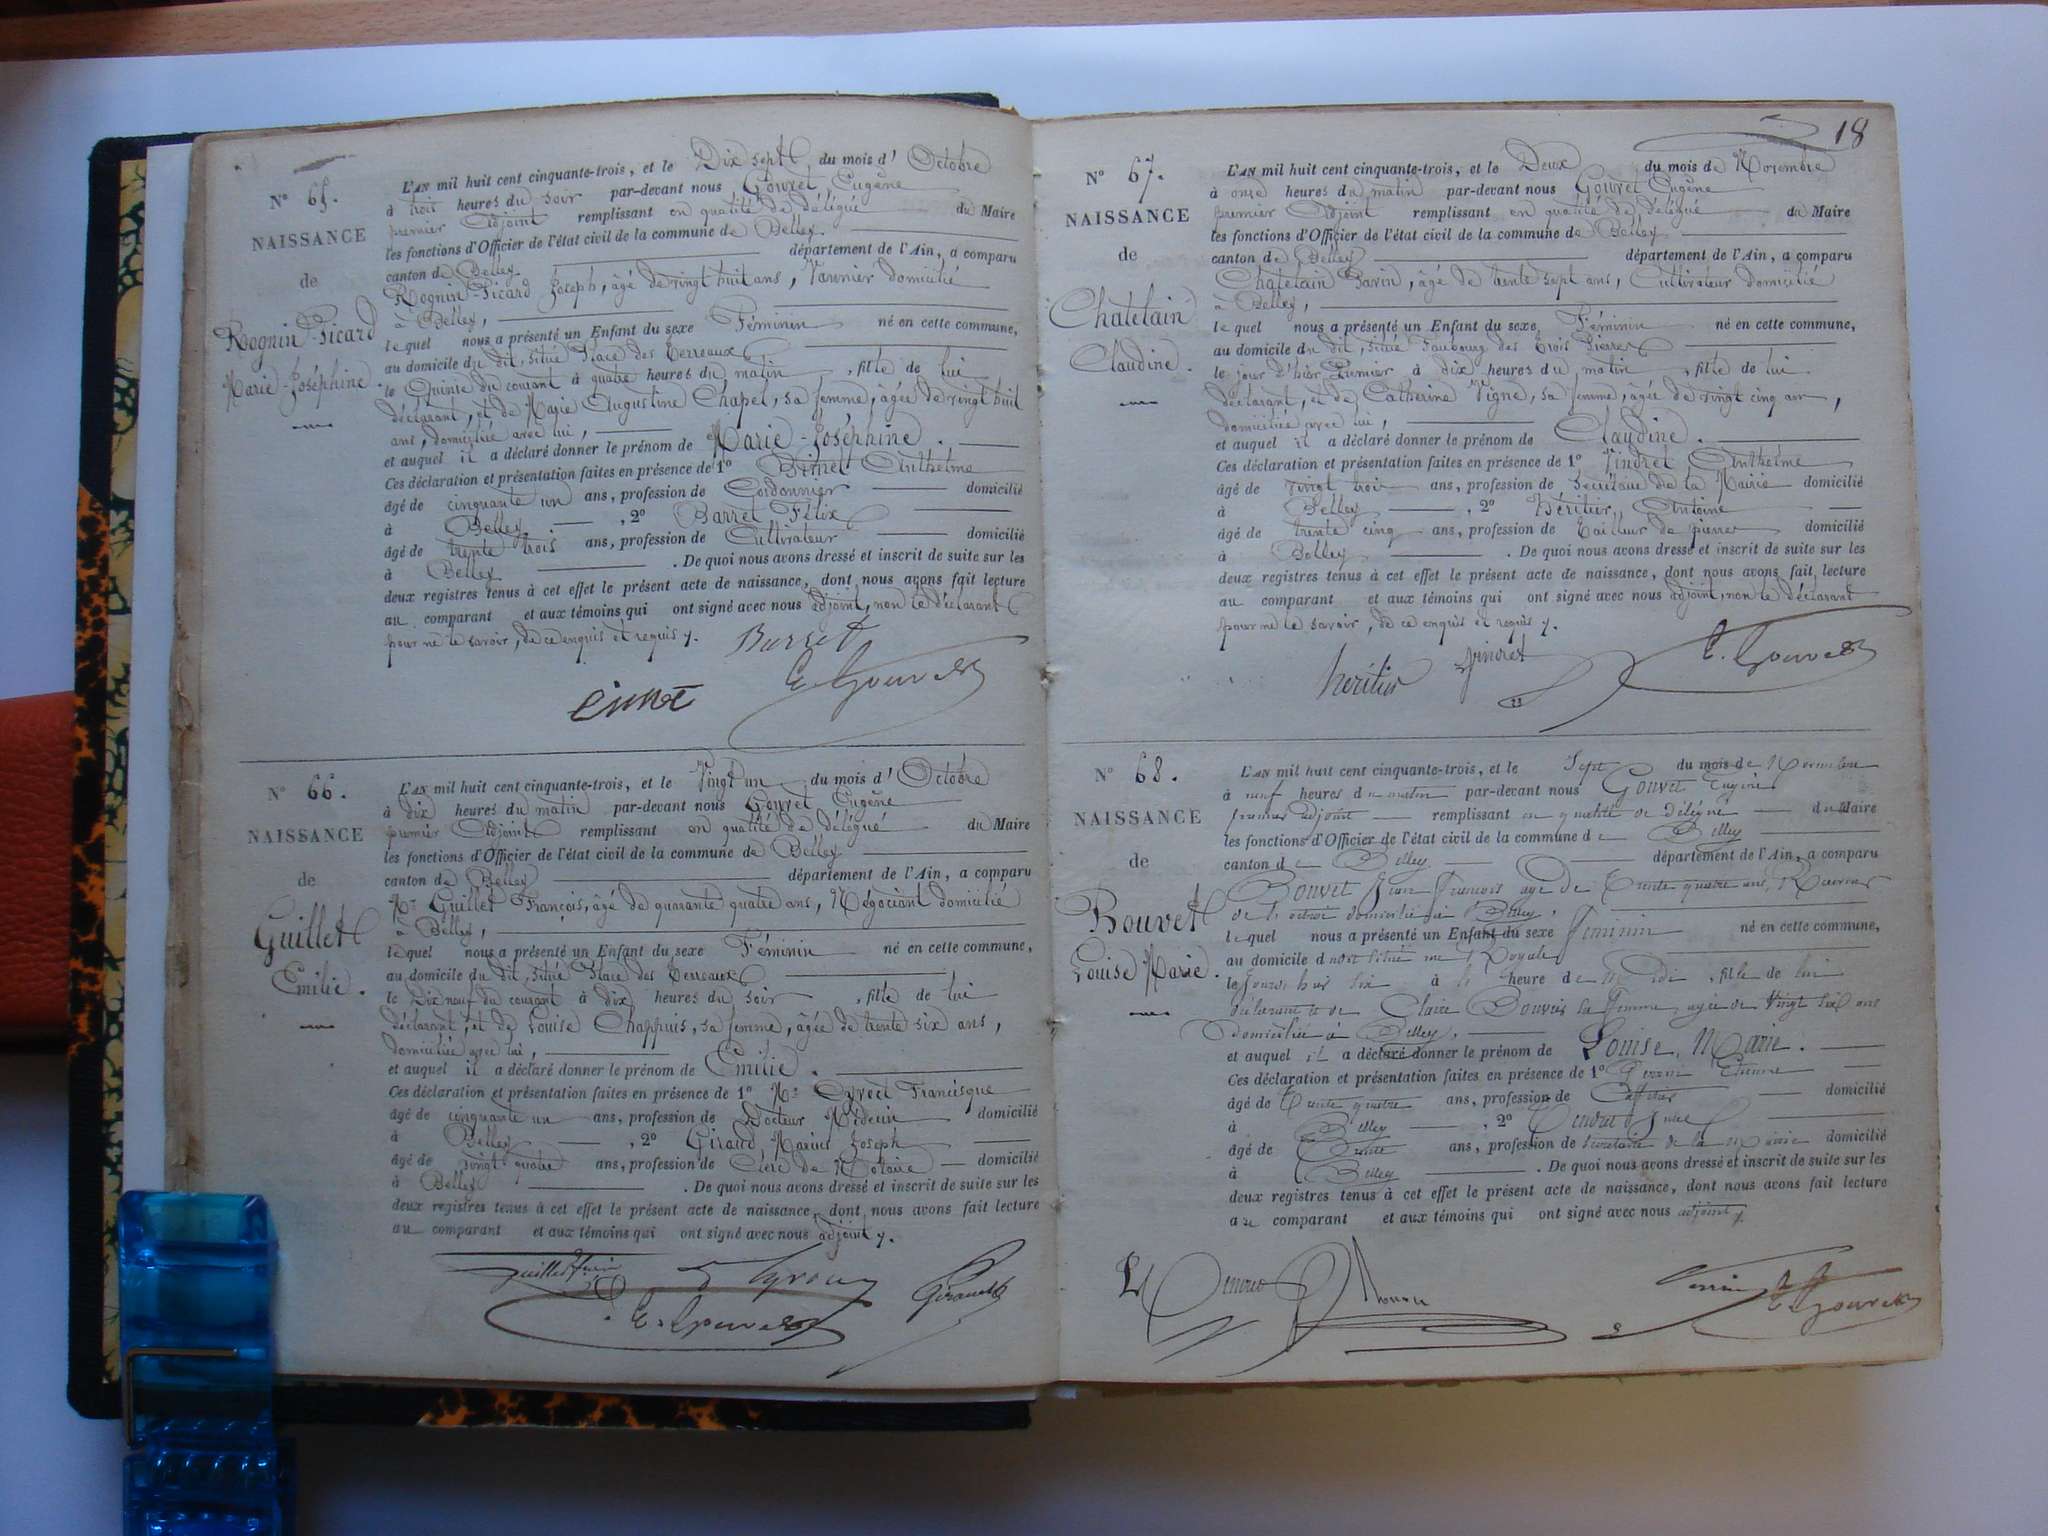 N° 65.
NAISSANCE
de
Rognin-Picard
Marie-Joséphine.
L'AN mil huit cent cinquante-trois, et le Dix sept du mois d'Octobre
à trois heures du soir par-devant nous Gouvret Eugène
premier Adjoint remplissant en qualité de délégué du Maire
les fonctions d'Officier de l'état civil de la commune de Belley.
canton de Belley département de l'Ain, a comparu
Rognin-Picard Joseph, âgé de vingt huit ans, Vannier domicilié
à Belley,
lequel nous a présenté un Enfant du sexe Féminin né en cette commune,
au domicile du dit, situé Place des Terreaux
le Quinze du courant à quatre heures du matin, fille de lui
déclarant, et de Marie Augustine Chapel, sa femme, âgée de vingt huit
ans, domiciliée avec lui,
et auquel il a déclaré donner le prénom de Marie-Joséphine.
Ces déclaration et présentation faites en présence de 1° Anthelme
âgé de cinquante un ans, profession de Cordonnier domicilié
à Belley, 2° Barret Félix
âgé de trente trois ans, profession de Cultivateur domicilié
à Belley. De quoi nous avons dressé et inscrit de suite sur les
deux registres tenus à cet effet le présent acte de naissance, dont nous avons fait lecture
au comparant et aux témoins qui ont signé avec nous adjoint, non le déclarant
pour ne le savoir, de ce enquis et requis.
Barret
E. Gouvret
N° 66.
NAISSANCE
de
Guillet
Emilie.
L'AN mil huit cent cinquante-trois, et le Vingt un du mois d'Octobre
à dix heures du matin par-devant nous Gouvret Eugène
premier Adjoint remplissant en qualité de délégué du Maire
les fonctions d'Officier de l'état civil de la commune de Belley
canton de Belley département de l'Ain, a comparu
Mr Guillet François, âgé de quarante quatre ans, Négociant domicilié
à Belley,
lequel nous a présenté un Enfant du sexe Féminin né en cette commune,
au domicile du dit, situé Place des Terreaux
le Dix neuf du courant à dix heures du soir, fille de lui
déclarant, et de Louise Chappuis, sa femme, âgée de trente six ans,
domiciliée avec lui,
et auquel il a déclaré donner le prénom de Emilie.
Ces déclaration et présentation faites en présence de 1° Mr Francisque
âgé de cinquante un ans, profession de Docteur Médecin domicilié
à Belley, 2° Giraud Marius Joseph
âgé de vingt quatre ans, profession de Clerc de Notaire domicilié
à Belley. De quoi nous avons dressé et inscrit de suite sur les
deux registres tenus à cet effet le présent acte de naissance, dont nous avons fait lecture
au comparant et aux témoins qui ont signé avec nous adjoint.
E. Gouvret
18
N° 67.
NAISSANCE
de
Chatelain
Claudine.
L'AN mil huit cent cinquante-trois, et le Deux du mois de Novembre
à onze heures du matin par-devant nous Gouvret Eugène
premier Adjoint remplissant en qualité de délégué du Maire
les fonctions d'Officier de l'état civil de la commune de Belley
canton de Belley département de l'Ain, a comparu
Chatelain Savin, âgé de trente sept ans, Cultivateur domicilié
à Belley,
lequel nous a présenté un Enfant du sexe Féminin né en cette commune,
au domicile du dit, situé Faubourg des Trois Pierres
le jour d'hier Premier à dix heures du matin, fille de lui
déclarant, et de Catherine Vigne, sa femme, âgée de vingt cinq ans,
domiciliée avec lui,
et auquel il a déclaré donner le prénom de Claudine.
Ces déclaration et présentation faites en présence de 1° Vindret Anthelme
âgé de vingt trois ans, profession de Secrétaire de la Mairie domicilié
à Belley, 2° Héritier, Antoine
âgé de trente cinq ans, profession de Tailleur de pierres domicilié
à Belley. De quoi nous avons dressé et inscrit de suite sur les
deux registres tenus à cet effet le présent acte de naissance, dont nous avons fait lecture
au comparant et aux témoins qui ont signé avec nous adjoint, non le déclarant
pour ne le savoir, de ce enquis et requis.
héritier Vindret E. Gouvret
N° 68.
NAISSANCE
de
Bouvet
Louise Marie.
L'AN mil huit cent cinquante-trois, et le Sept du mois de Novembre
à neuf heures du matin par-devant nous Gouvret Eugène
premier adjoint remplissant en qualité de délégué du Maire
les fonctions d'Officier de l'état civil de la commune de Belley
canton de Belley département de l'Ain, a comparu
Bouvet Jean François agé de Trente quatre ans, Receveur
de l'octroi domicilié à Belley,
lequel nous a présenté un Enfant du sexe Féminin né en cette commune,
au domicile du dit située rue Royale
le jour d'hier six à heure de Midi, fille de lui
déclarant et de Claire Bouvier sa femme agée de Vingt six ans
domiciliée à Belley.
et auquel il a déclaré donner le prénom de Louise, Marie.
Ces déclaration et présentation faites en présence de 1° Perrin Etienne
âgé de Trente quatre ans, profession de Caffetier domicilié
à Belley, 2°
âgé de Trente ans, profession de Secrétaire de la Mairie domicilié
à Belley. De quoi nous avons dressé et inscrit de suite sur les
deux registres tenus à cet effet le présent acte de naissance, dont nous avons fait lecture
au comparant et aux témoins qui ont signé avec nous adjoint.
Perrin E. Gouvret